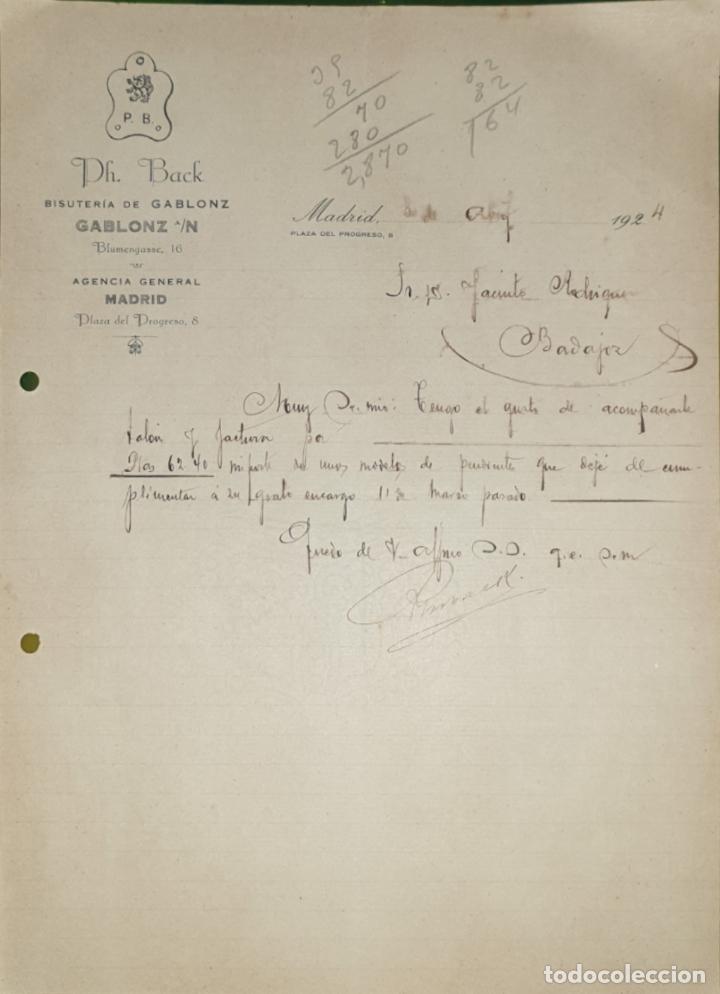 P. B.
Ph. Back
BISUTERÍA DE GABLONZ
GABLONZ A/N
Blumengasse, 16
AGENCIA GENERAL
MADRID
Plaza del Progreso, 8
82
70
280
2,870
82
82
164
Madrid, de 1924
PLAZA DEL PROGRESO, 8
Sr. D. Jacinto Rodriguez
Badajoz
Muy Sr. mio: Tengo el gusto de acompañarle
talón y factura por
Ptas 62.40 importe de unos modelos de pendientes que dejé de cum-
plimentar á su grato encargo 11 de Marzo pasado
Quedo de V. affmo S.S. q.e.s.m
todocoleccion